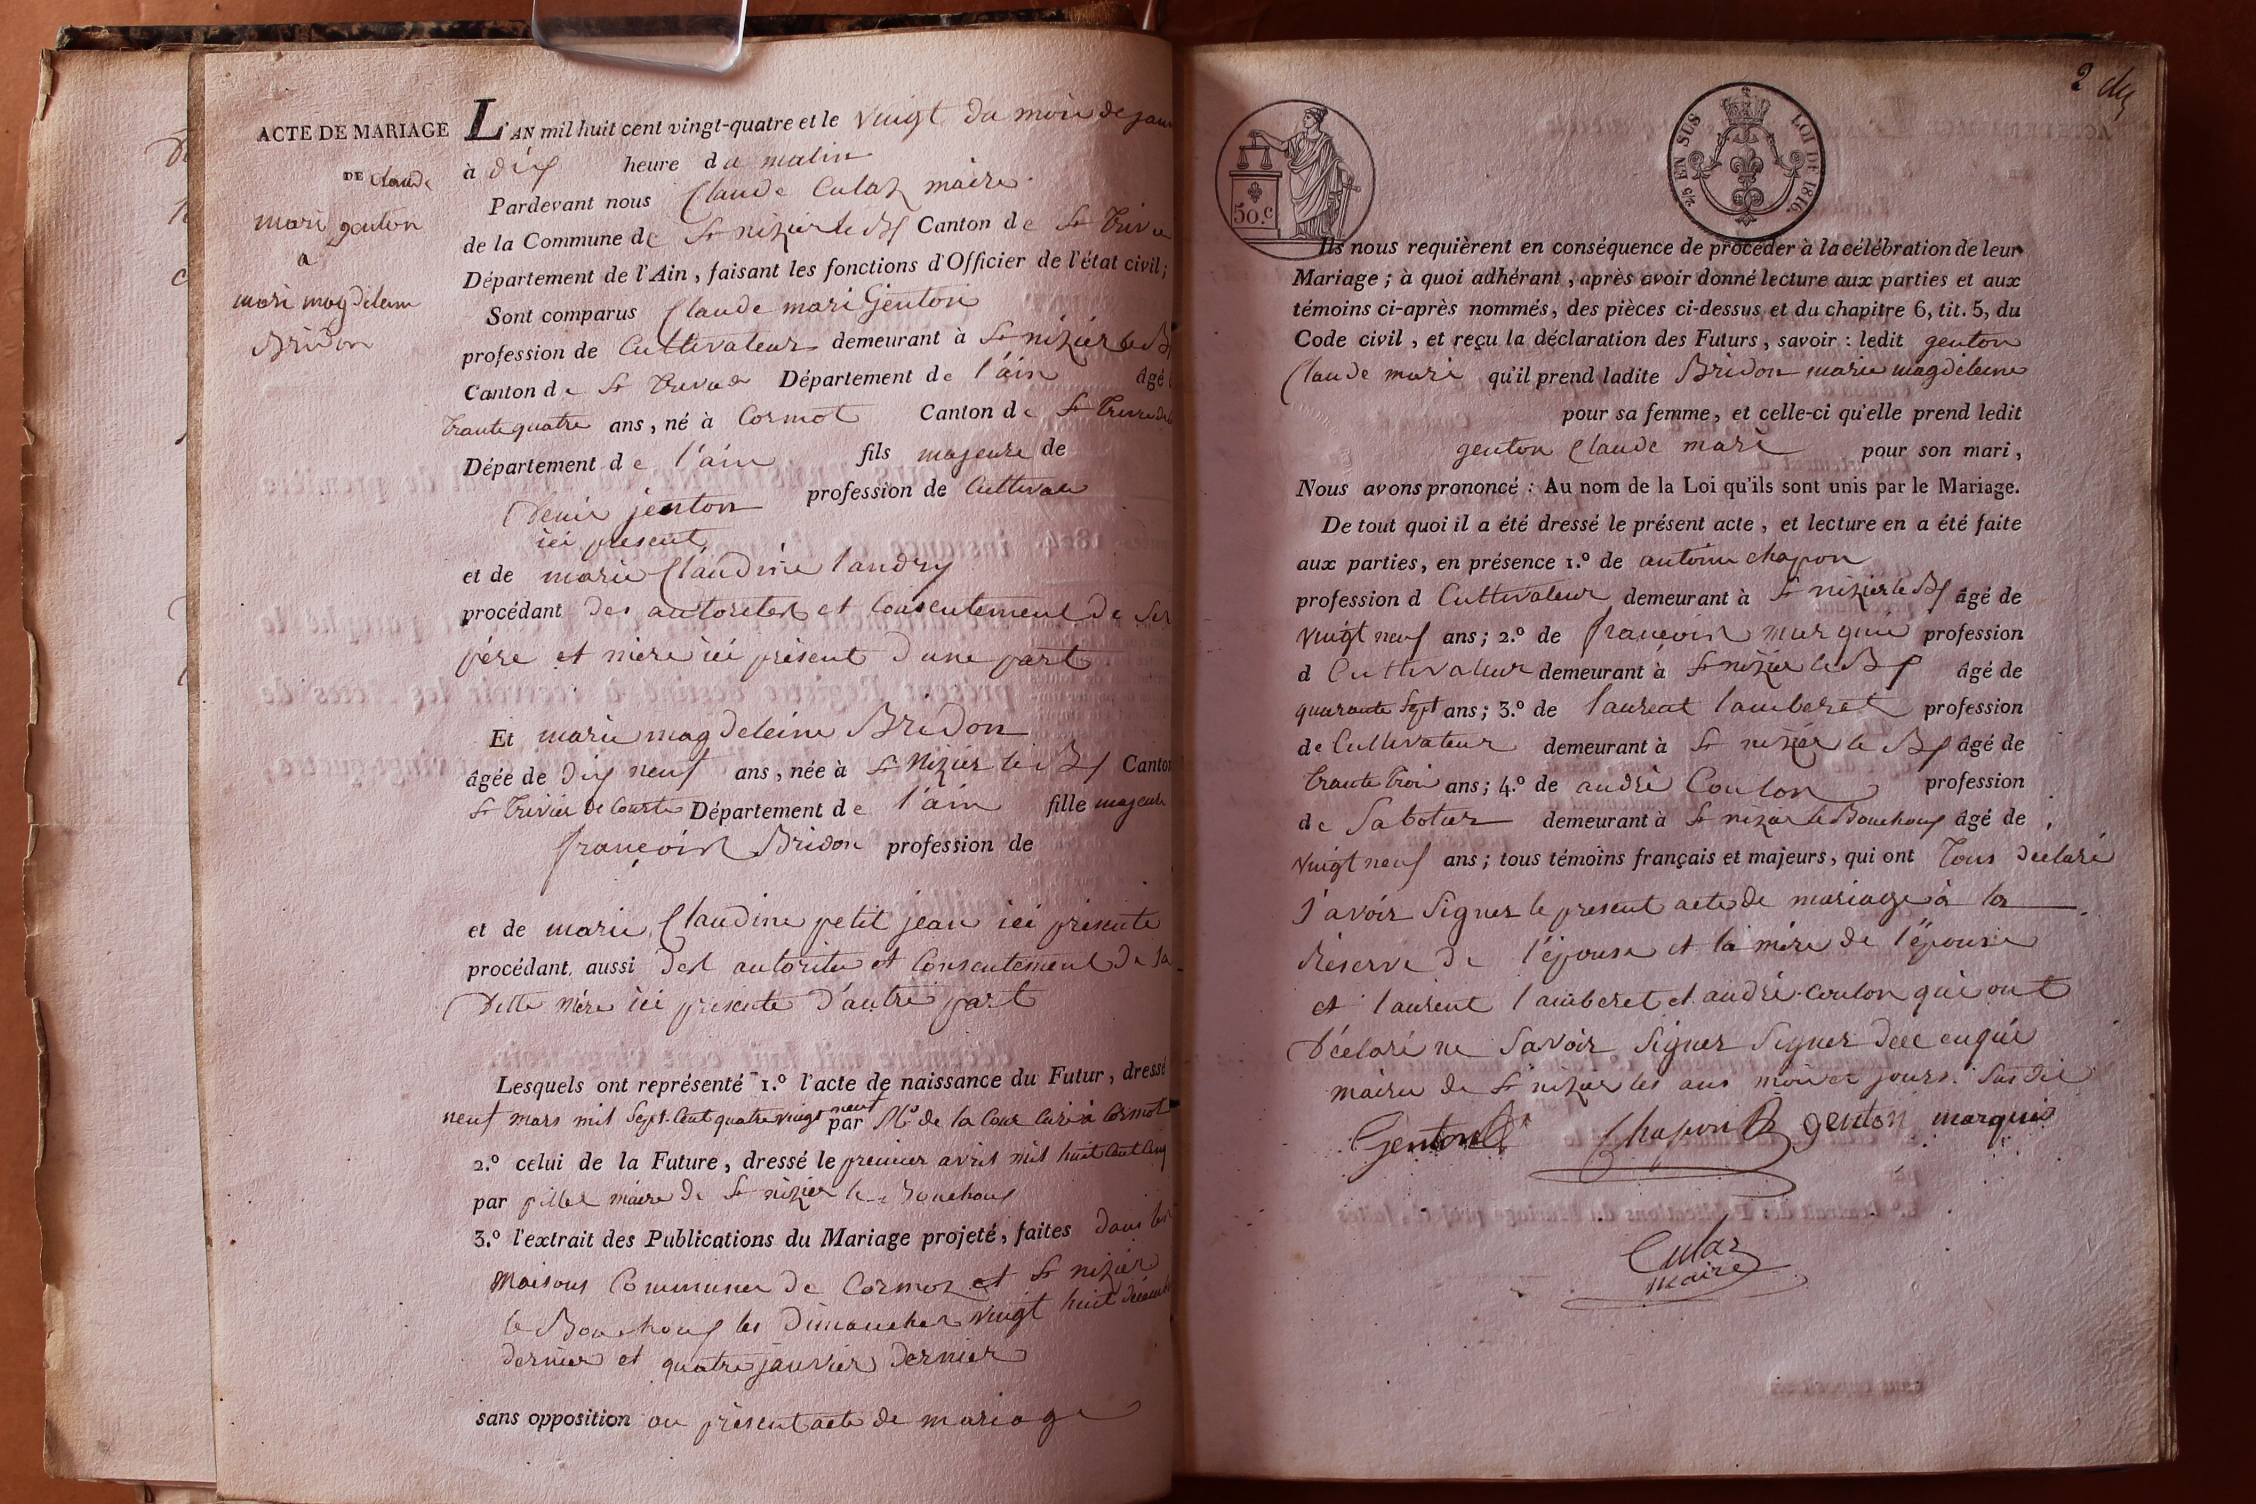 ACTE DE MARIAGE
DE Claude
mari genton
a
mari magdeleine
Bridon
L'AN mil huit cent vingt-quatre et le vingt du mois de janv
à dix heure du matin
Pardevant nous Claude Culaz maire
de la Commune de St nizier le Bx Canton de St Trivier
Département de l'Ain, faisant les fonctions d'Officier de l'état civil;
Sont comparus Claude mari Genton
profession de Cultivateur demeurant à St nizier le B
Canton de St Trivier Département de l'ain âgé
trante quatre ans, né à Cormot Canton de St Trivier de
Département de l'ain fils majeure de
Denis jenton profession de Cultivateu
ici present
et de marie Claudine landry
procédant des autorités et Consentement de ses
père et mère ici présent d'une part
Et marie magdeleine Bridon
âgée de dix neuf ans, née à St Nizier le Bx Canton
St Trivier de Courte Département de l'ain fille majeure
françois Bridon profession de
et de marie Claudine petit jean ici présente
procédant aussi des autorités et Consentement de sa
ditte mère ici presente d'autre part
Lesquels ont représenté 1.º l'acte de naissance du Futur, dressé
neuf mars mil Sept Cent quatre vingt neuf par Mr de la Cour Curé à Cormot
2.º celui de la Future, dressé le premier avril mil huit Cent Cinq
par pillet maire de St nizier le Bouchoux
3.º l'extrait des Publications du Mariage projeté, faites dans les
maisons Communes de Cormoz et St nizier
le Bouchoux les Dimanches vingt huit décembre
dernier et quatre janvier dernier
sans opposition au présent acte de mariage
2 dx
50.c
25 EN SUS LOI DE 1816.
Ils nous requièrent en conséquence de procéder à la célébration de leur
Mariage; à quoi adhérant, après avoir donné lecture aux parties et aux
témoins ci-après nommés, des pièces ci-dessus et du chapitre 6, tit. 5, du
Code civil, et reçu la déclaration des Futurs, savoir: ledit genton
Claude mari qu'il prend ladite Bridon marie magdeleine
pour sa femme, et celle-ci qu'elle prend ledit
genton Claude mari pour son mari,
Nous avons prononcé: Au nom de la Loi qu'ils sont unis par le Mariage.
De tout quoi il a été dressé le présent acte, et lecture en a été faite
aux parties, en présence 1.º de antoine chapon
profession d Cultivateur demeurant à St nizier le Bx âgé de
vingt neuf ans; 2.º de françois marquis profession
d Cultivateur demeurant à St nizier le Bx âgé de
quarante Sept ans; 3.º de laurent lamberet profession
de Cultivateur demeurant à St nizier le Bx âgé de
trante trois ans; 4.º de andré Coulon profession
de Sabotier demeurant à St nizier le Bouchoux âgé de
vingt neuf ans; tous témoins français et majeurs, qui ont Tous déclaré
savoir Signer le present acte de mariage à la
réserve de l'épouse et la mère de l'épouse
et laurent lamberet et andré Coulon qui ont
déclaré ne Savoir Signer Signer de ce enquis
mairie de St nizier les ans mois et jours Susdit
Genton Chapon genton marquis
Culaz
maire